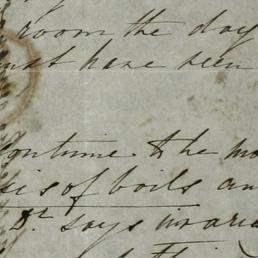 room the day
must have been
continue to the mo
sis of boils an
Dr. says invaria